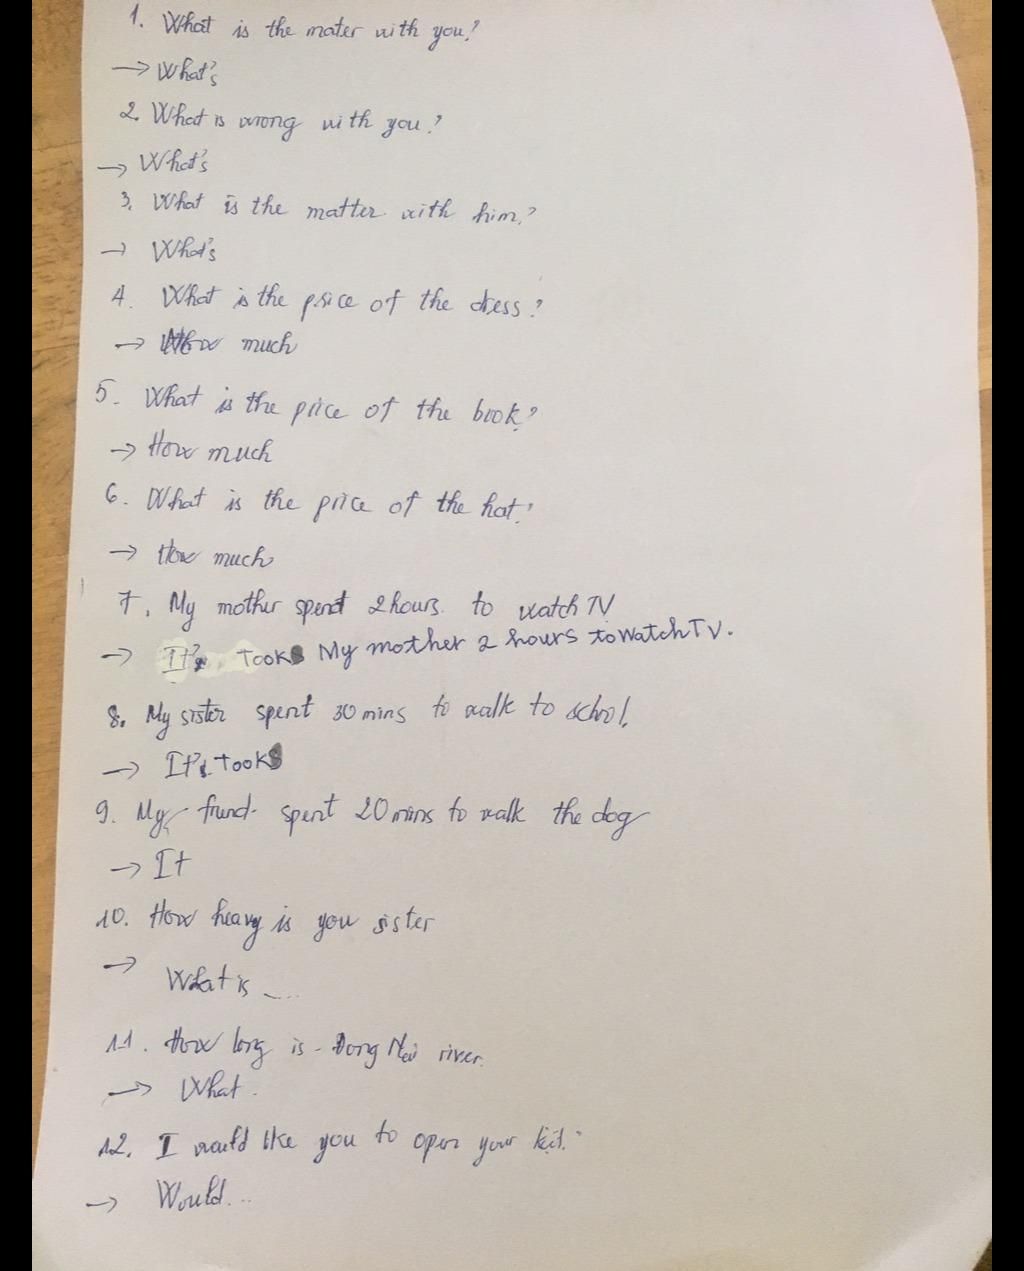 1. What is the mater with you?
→ What's
2. What is wrong with you?
→ What's
3. What is the matter with him?
→ What's
4. What is the price of the dress?
→ How much
5. What is the price of the book?
→ How much
6. What is the price of the hat?
→ How much
7. My mother spend 2 hours to watch TV
→ It Took My mother 2 hours to Watch TV.
8. My sister spent 30 mins to walk to school.
→ It Took
9. My friend spent 20 mins to walk the dog
→ It
10. How heavy is you sister
→ What is ....
11. How long is Dong Nai river.
→ What.
12. I would like you to open your
→ Would...